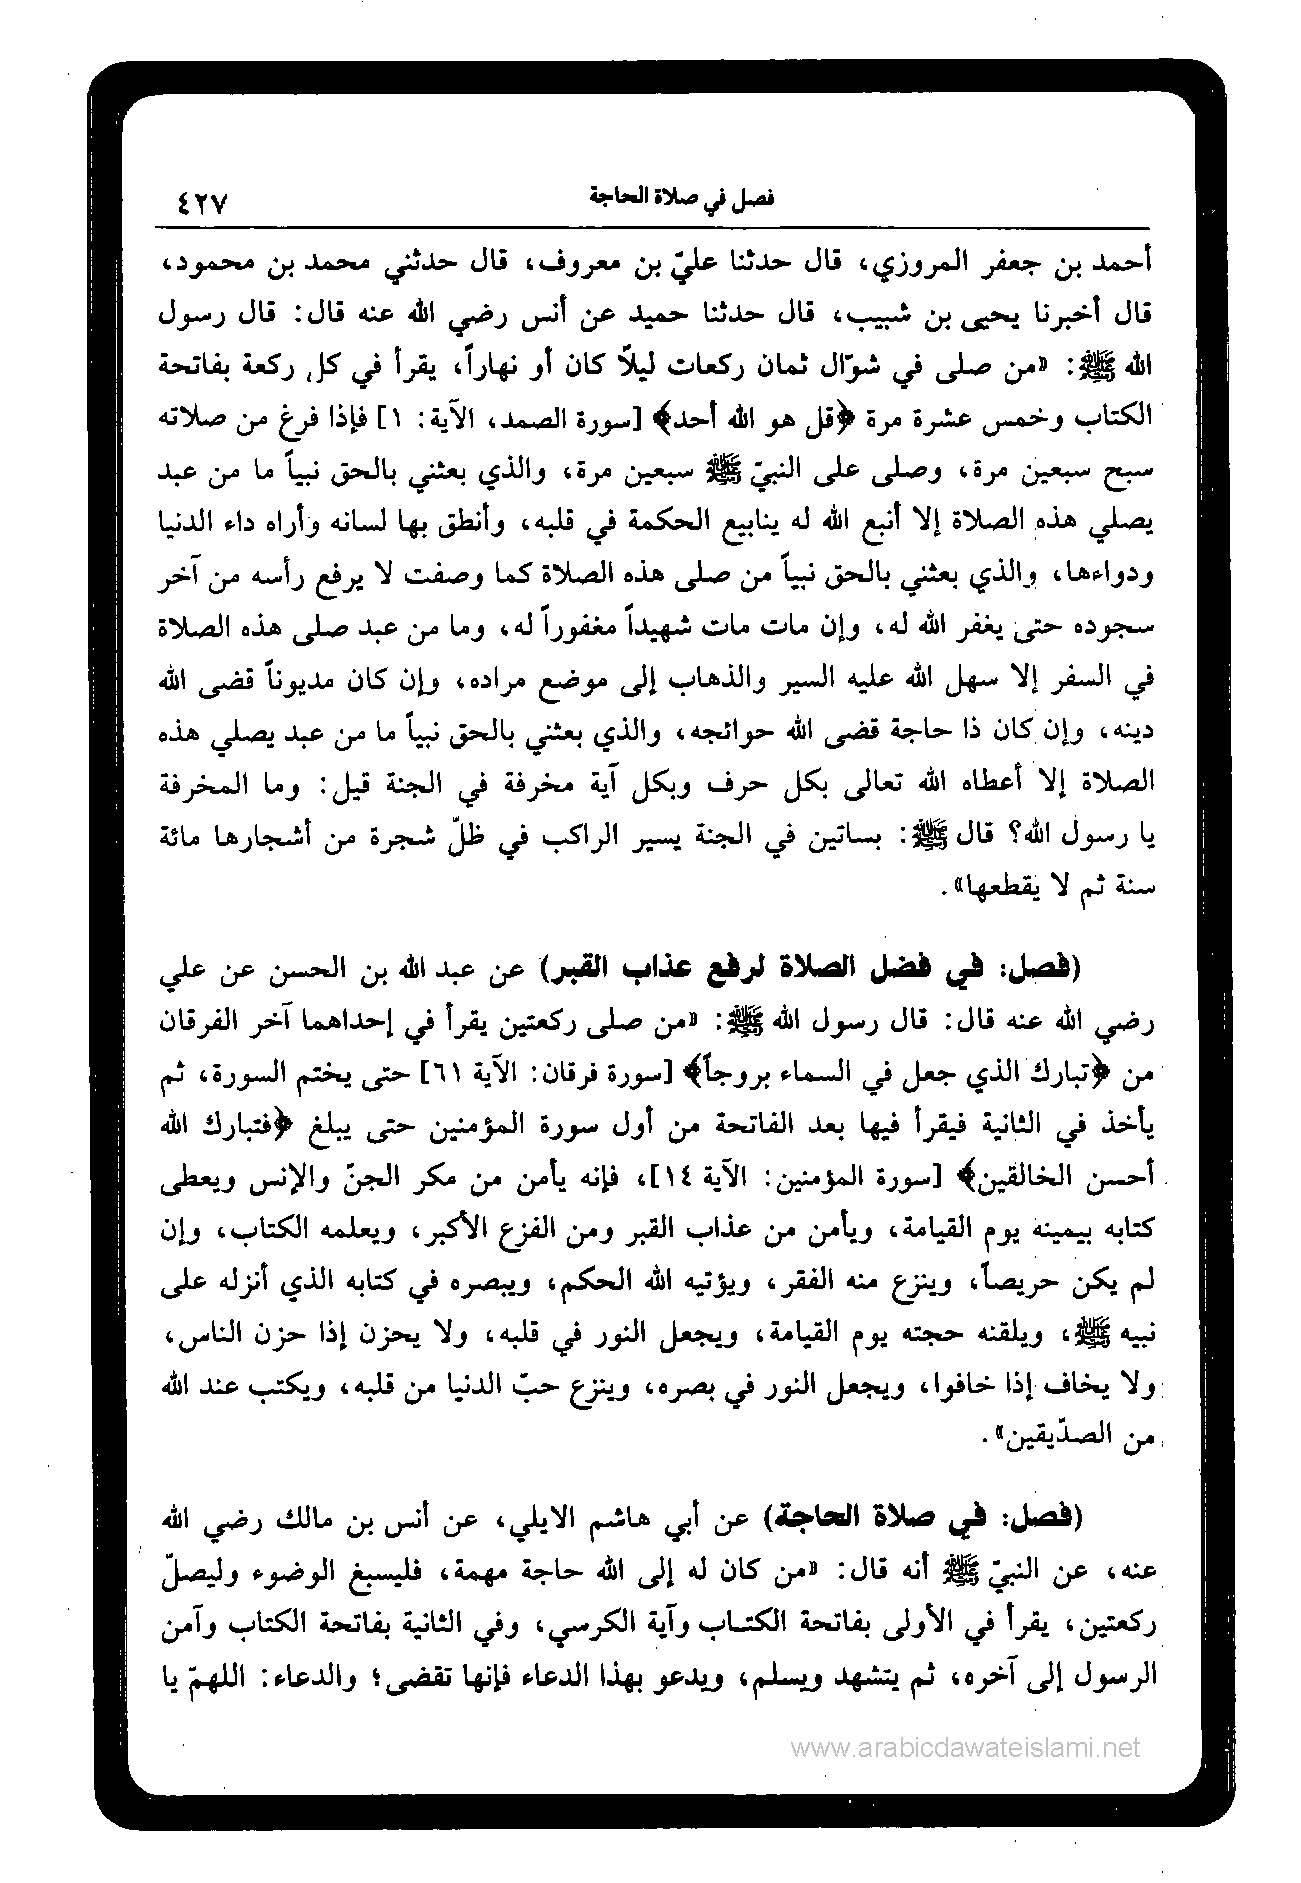 فصل في صلاة الحاجة ٤٢٧
أحمد بن جعفر المروزي، قال حدثنا عليّ بن معروف، قال حدثني محمد بن محمود،
قال أخبرنا يحيى بن شبيب، قال حدثنا حميد عن أنس رضي الله عنه قال: قال رسول
الله ﷺ: «من صلى في شوّال ثمان ركعات ليلاً كان أو نهاراً، يقرأ في كل ركعة بفاتحة
الكتاب وخمس عشرة مرة ﴿قل هو الله أحد﴾ [سورة الصمد، الآية: ١] فإذا فرغ من صلاته
سبح سبعين مرة، وصلى على النبيّ ﷺ سبعين مرة، والذي بعثني بالحق نبياً ما من عبد
يصلي هذه الصلاة إلا أنبع الله له ينابيع الحكمة في قلبه، وأنطق بها لسانه وأراه داء الدنيا
ودواءها، والذي بعثني بالحق نبياً من صلى هذه الصلاة كما وصفت لا يرفع رأسه من آخر
سجوده حتى يغفر الله له، وإن مات مات شهيداً مغفوراً له، وما من عبد صلى هذه الصلاة
في السفر إلا سهل الله عليه السير والذهاب إلى موضع مراده، وإن كان مديوناً قضى الله
دينه، وإن كان ذا حاجة قضى الله حوائجه، والذي بعثني بالحق نبياً ما من عبد يصلي هذه
الصلاة إلا أعطاه الله تعالى بكل حرف وبكل آية مخرفة في الجنة قيل: وما المخرفة
يا رسول الله؟ قال ﷺ: بساتين في الجنة يسير الراكب في ظلّ شجرة من أشجارها مائة
سنة ثم لا يقطعها».
(فصل: في فضل الصلاة لرفع عذاب القبر) عن عبد الله بن الحسن عن علي
رضي الله عنه قال: قال رسول الله ﷺ: «من صلى ركعتين يقرأ في إحداهما آخر الفرقان
من ﴿تبارك الذي جعل في السماء بروجاً﴾ [سورة فرقان: الآية ٦١] حتى يختم السورة، ثم
يأخذ في الثانية فيقرأ فيها بعد الفاتحة من أول سورة المؤمنين حتى يبلغ ﴿فتبارك الله
أحسن الخالقين﴾ [سورة المؤمنين: الآية ١٤]، فإنه يأمن من مكر الجنّ والإنس ويعطى
كتابه بيمينه يوم القيامة، ويأمن من عذاب القبر ومن الفزع الأكبر، ويعلمه الكتاب، وإن
لم يكن حريصاً، وينزع منه الفقر، ويؤتيه الله الحكم، ويبصره في كتابه الذي أنزله على
نبيه ﷺ، ويلقنه حجته يوم القيامة، ويجعل النور في قلبه، ولا يحزن إذا حزن الناس،
ولا يخاف إذا خافوا، ويجعل النور في بصره، وينزع حبّ الدنيا من قلبه، ويكتب عند الله
من الصدّيقين».
(فصل: في صلاة الحاجة) عن أبي هاشم الايلي، عن أنس بن مالك رضي الله
عنه، عن النبيّ ﷺ أنه قال: «من كان له إلى الله حاجة مهمة، فليسبغ الوضوء وليصلّ
ركعتين، يقرأ في الأولى بفاتحة الكتاب وآية الكرسي، وفي الثانية بفاتحة الكتاب وآمن
الرسول إلى آخره، ثم يتشهد ويسلم، ويدعو بهذا الدعاء فإنها تقضى؛ والدعاء: اللهمّ يا
www.arabicdawateislami.net